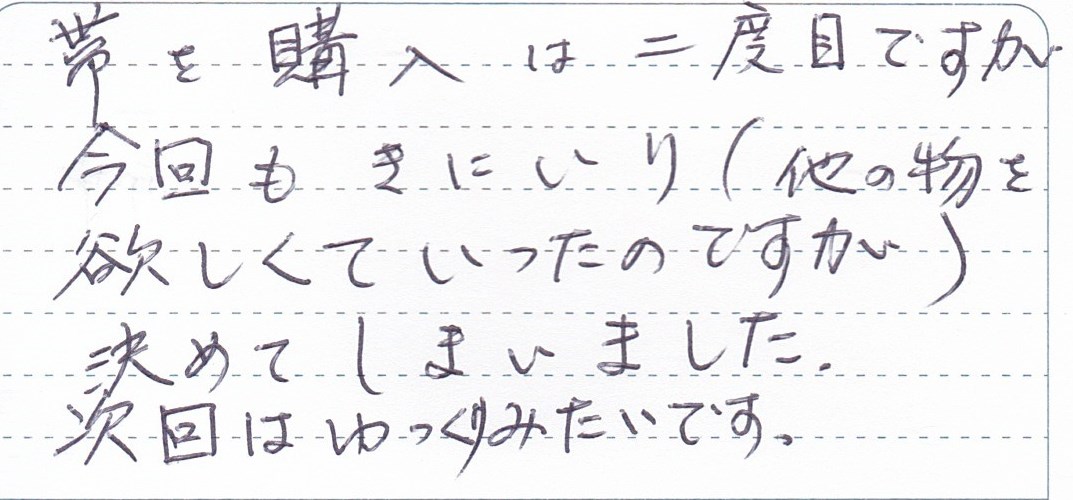 帯を購入は二度目ですが
今回もきにいり(他の物を
欲しくていったのですが)
決めてしまいました.
次回はゆっくりみたいです。